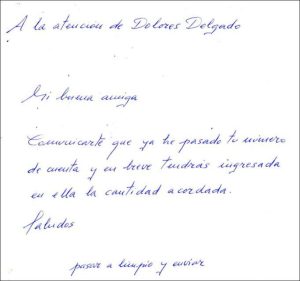 A la atención de Dolores Delgado
Mi buena amiga
Comunicarte que ya he pasado tu número
de cuenta y en breve tendrás ingresada
en ella la cantidad acordada.
Saludos
pasar a limpio y enviar